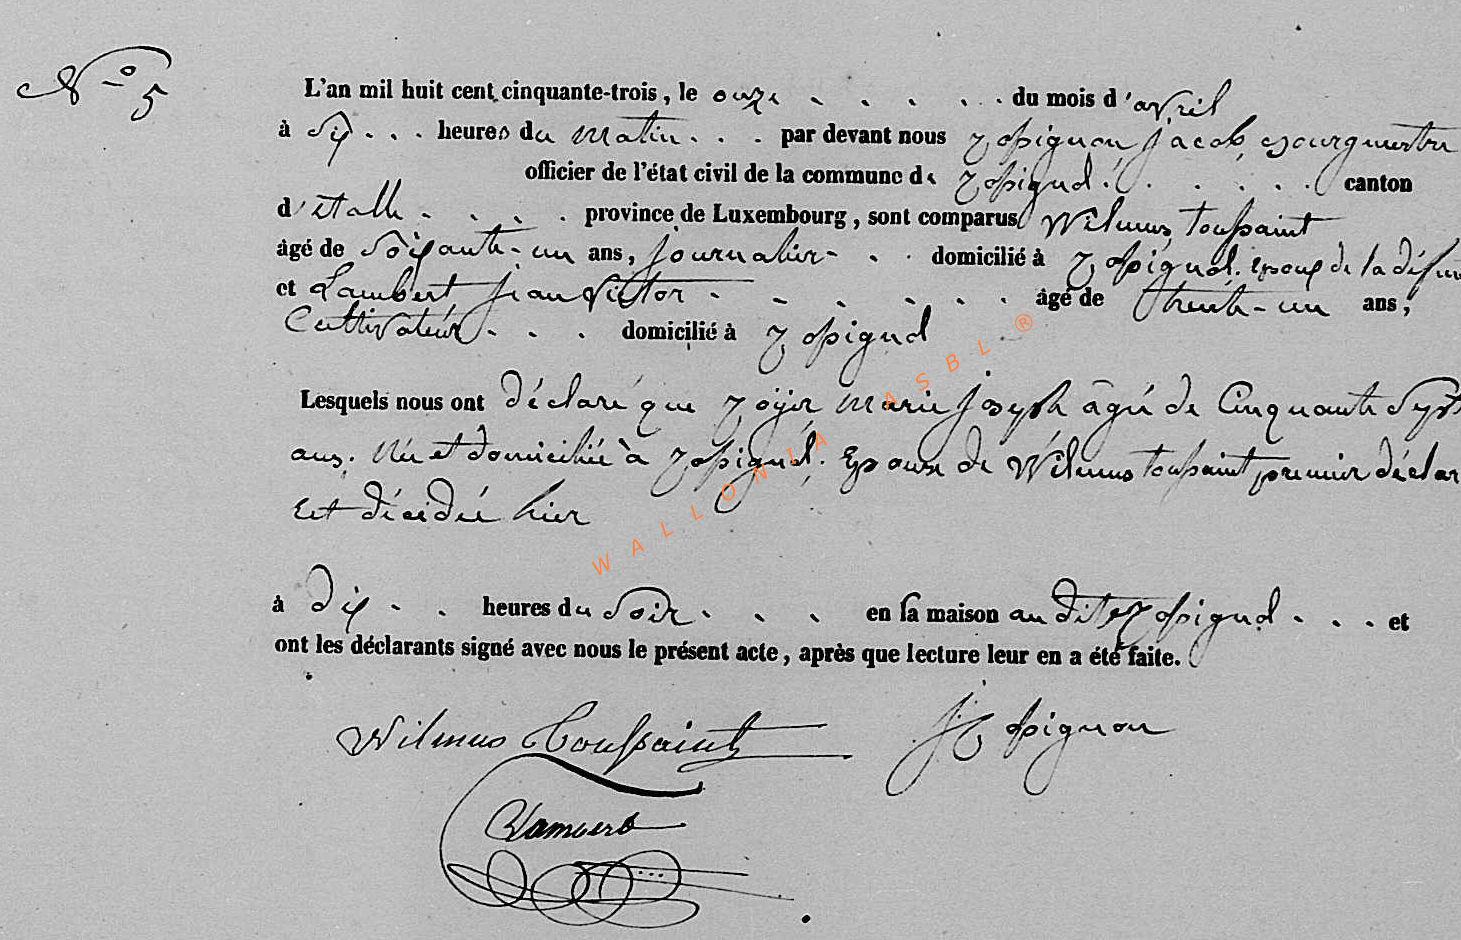 N° 5
L'an mil huit cent cinquante-trois, le onze . . . . . . du mois d'avril
à six . . . heures du matin . . . par devant nous Jacob, Bourgmestre
officier de l'état civil de la commune de . . . . . . canton
d'étalle . . . . province de Luxembourg, sont comparus Wilmus toussaint
âgé de Soixante-un ans, journalier . . domicilié à époux de la défun
et Lambert jean Victor . . . . . . . âgé de trente-un ans,
Cultivateur . . . domicilié à
Lesquels nous ont déclaré que Marie joseph âgée de Cinquante Sept
ans. Née et domiciliée à Epouse de Wilmus toussaint, premier déclar
Est décédée hier
à dix . . heures du Soir . . . en sa maison audit . . . et
ont les déclarants signé avec nous le présent acte, après que lecture leur en a été faite.
Wilmus Toussaint
Lambert
WALLONIA ASBL ®